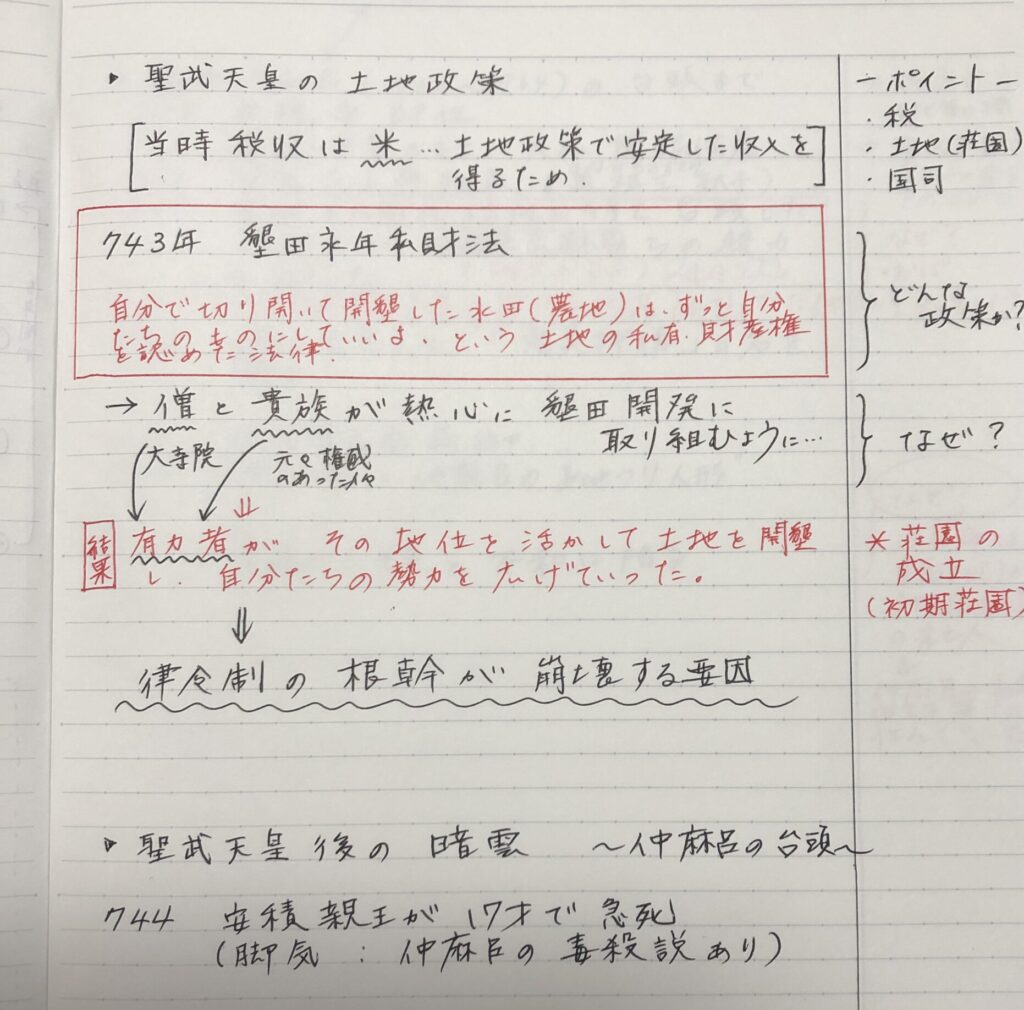 ▶ 聖武天皇の土地政策
[当時 税収は 米 … 土地政策で安定した収入を
得るため.]
743年 墾田永年私財法
自分で切り開いて開墾した水田(農地)は、ずっと自分
たちのものにしていいよ、という 土地の私有.財産権
を認めた法律.
→ 僧と 貴族が 熱心に 墾田開発に
取り組むように…
大寺院
元々権威
のあった人々
⇓
結果
有力者が その地位を活かして土地を開墾
し、自分たちの勢力を広げていった。
⇓
律令制の根幹が崩壊する要因
▶ 聖武天皇後の暗雲 〜仲麻呂の台頭〜
744 安積親王が17才で急死
(脚気 : 仲麻呂の毒殺説あり)
ーポイントー
・税
・土地(荘園)
・国司
どんな
政策か?
なぜ?
*荘園の
成立
(初期荘園)